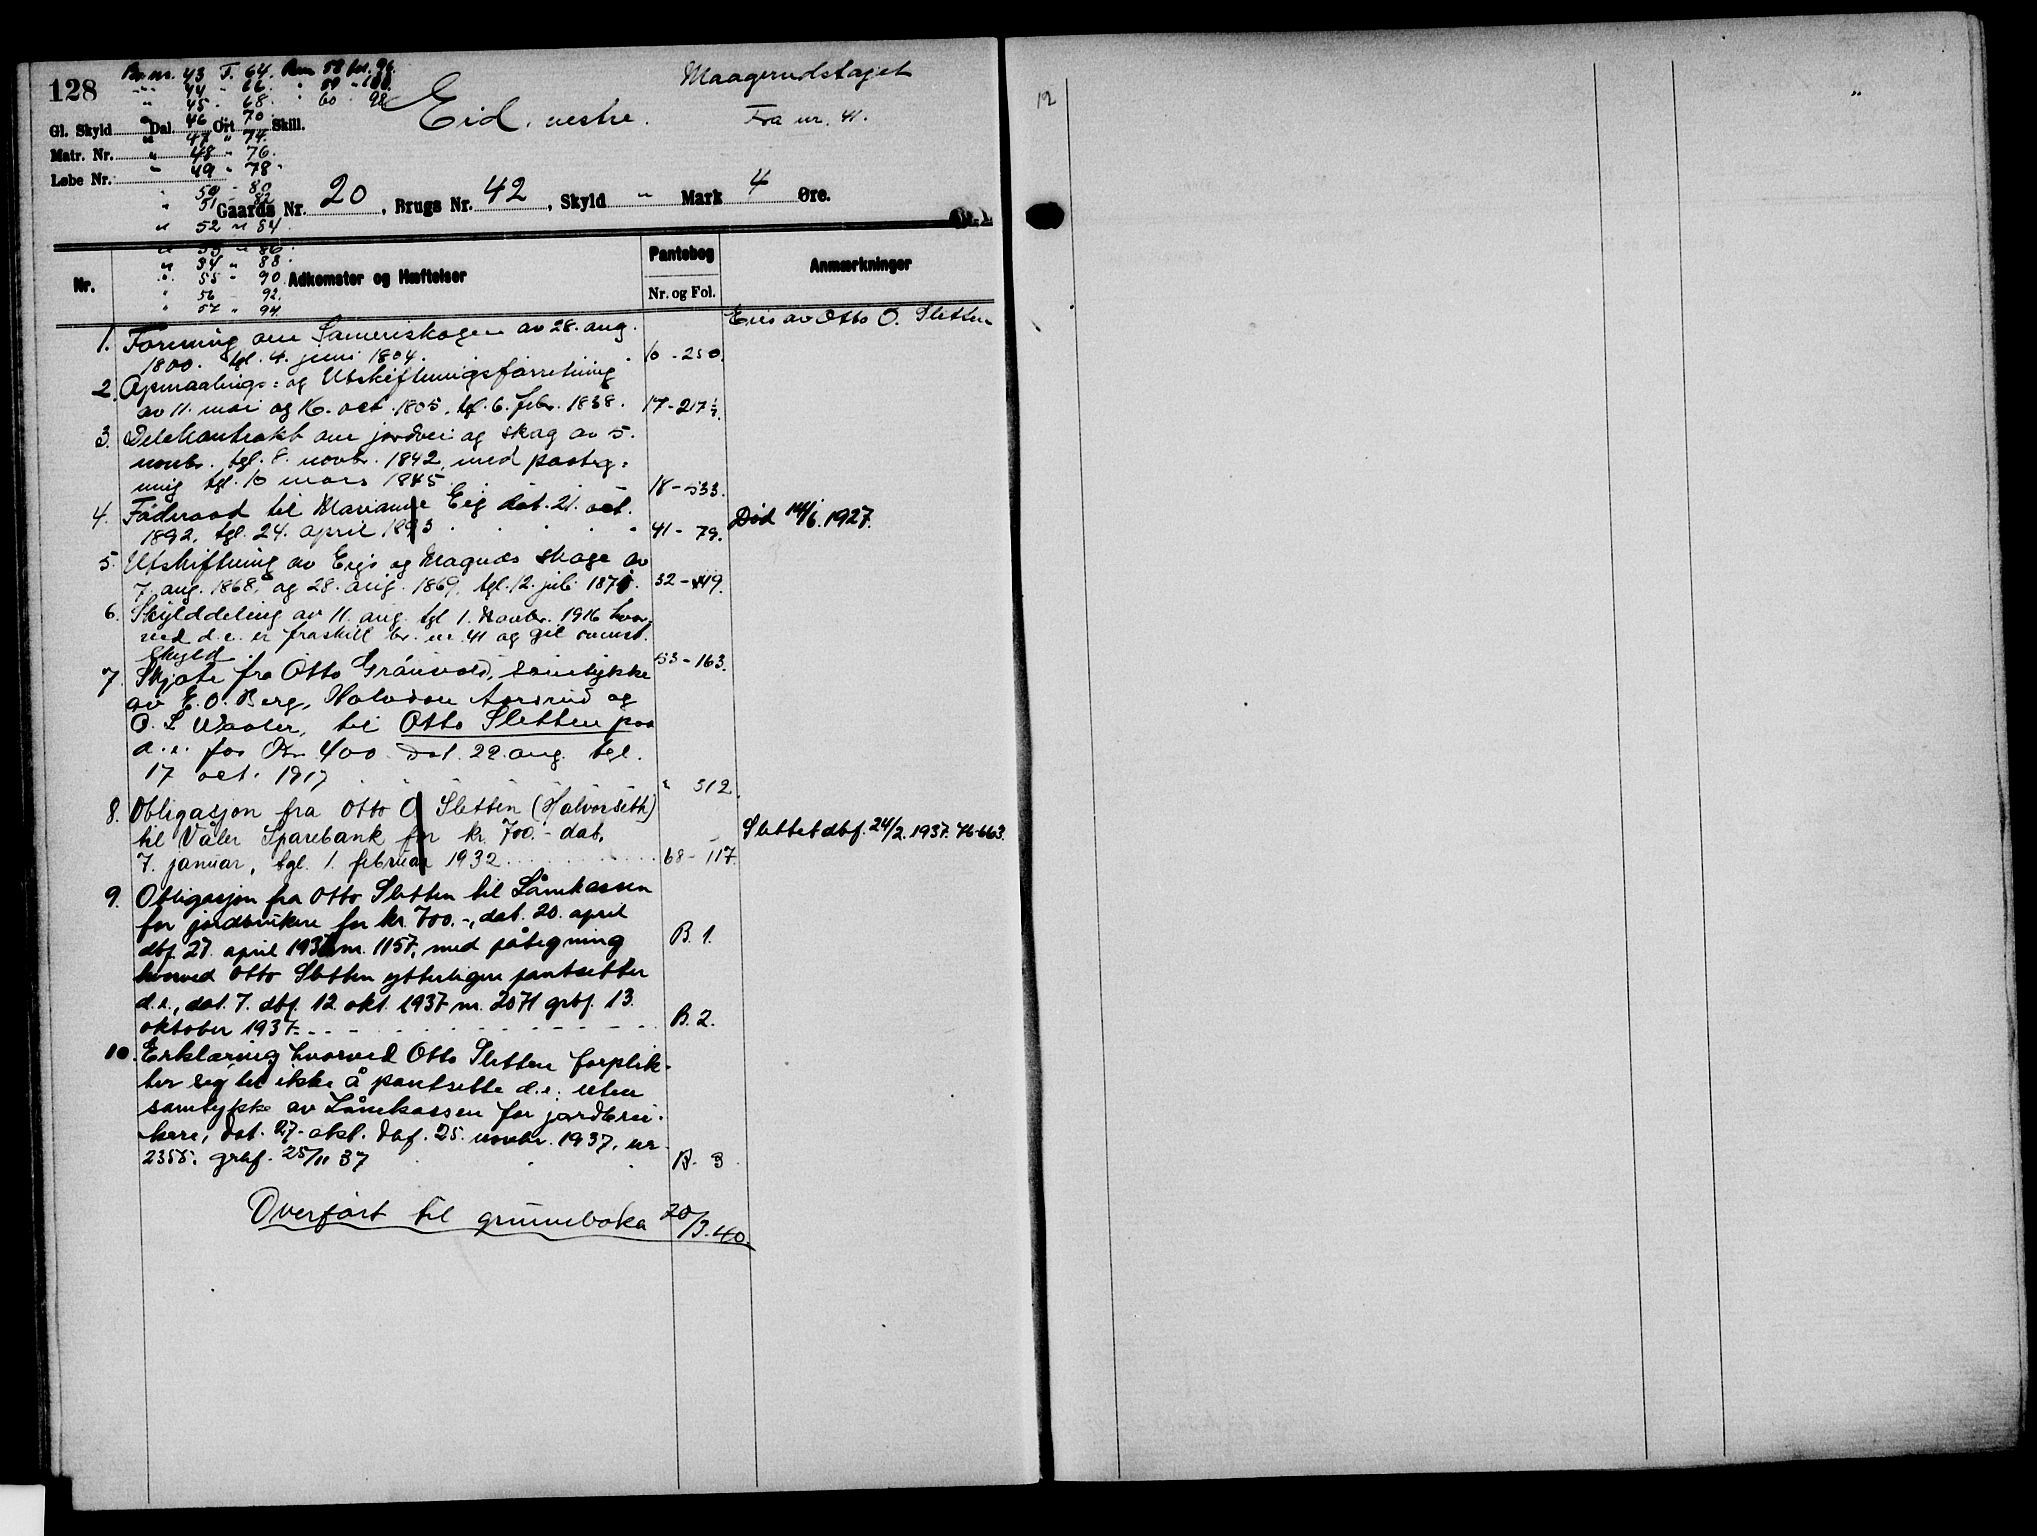 128
Br. nr. 43 F. 64. Bn 58 fol. 96.
" 44 " 66. " 59 " 100.
" 45 " 68. " 60 " 98.
" 46 " 70.
" 47 " 74.
" 48 " 76.
" 49 " 78.
" 50 " 80
" 51 " 82
" 52 " 84.
" 53 " 86.
" 54 " 88.
" 55 " 90.
" 56 " 92.
" 57 " 94.
Eid, vestre.
Maagerudstaget
Fra nr. 41.
Gl. Skyld Dal. Ort Skill.
Matr. Nr.
Løbe Nr.
Gaards Nr. 20, Brugs Nr. 42, Skyld " Mark 4 Øre.
Nr.
Adkomster og Hæftelser
Pantebog
Nr. og Fol.
Anmærkninger
Eies av Otto O. Sletten
1. Forening om Sameriskogen av 28. aug.
1800. tgl. 4. juni 1804. 10 - 250.
2. Opmaalings= og Utskiftningsforretning
av 11. mai og 16. oct. 1805, tgl. 6. febr. 1838. 17 - 217½
3. Delekontrakt om jordvei og skog av 5.
novbr. tgl. 8. novbr. 1842, med paateg=
ning tgl. 10 mars 1845. 18 - 533.
4. Føderaad til Marianne Eig dat. 21. oct.
1892, tgl. 24. april 1893 41 - 79. Død 14/6. 1927.
5. Utskiftning av Eigs og Magnæs skoge av
7. aug. 1868, og 28. aug. 1869, tgl. 12. juli 1870. 32 - 449.
6. Skylddeling av 11. aug. tgl 1. Novbr. 1916 hvor-
ved d. e. er fraskilt br. nr. 41 og git ovenst.
skyld 53 - 163.
7. Skjøte fra Otto Grønvold, samtykke
av E. O. Berg, Halvdan Aasrud og
O. L Waaler, til Otto Sletten paa
d. e. for Kr 400. dat. 22. aug. tgl.
17 oct. 1917 " 512.
8. Obligasjon fra Otto O Sletten (Halvorseth)
til Våler Sparebank for kr. 700.- dat.
7. januar, tgl. 1. februar 1932 68 - 117. Slettet dbf. 24/2. 1937. 76-663.
9. Obligasjon fra Otto Sletten til Lånekassen
for jordbrukere for kr. 700.-, dat. 20. april
dbf. 27. april 1937 nr. 1157, med påtegning B. 1.
hvorved Otto Sletten ytterligere pantsetter
d. e., dat. 7. dbf. 12. okt. 1937 nr. 2071 grbf. 13.
oktober 1937. B. 2.
10. Erklæring hvorved Otto Sletten forplik-
ter sig til ikke å pantsette d. e. uten
samtykke av Lånekassen for jordbru-
kere, dat. 27. okt. dbf. 25. novbr. 1937, nr
2355, grbf. 25/11 37 B. 3
Overført til grunnboka 20/3. 40.
12
"